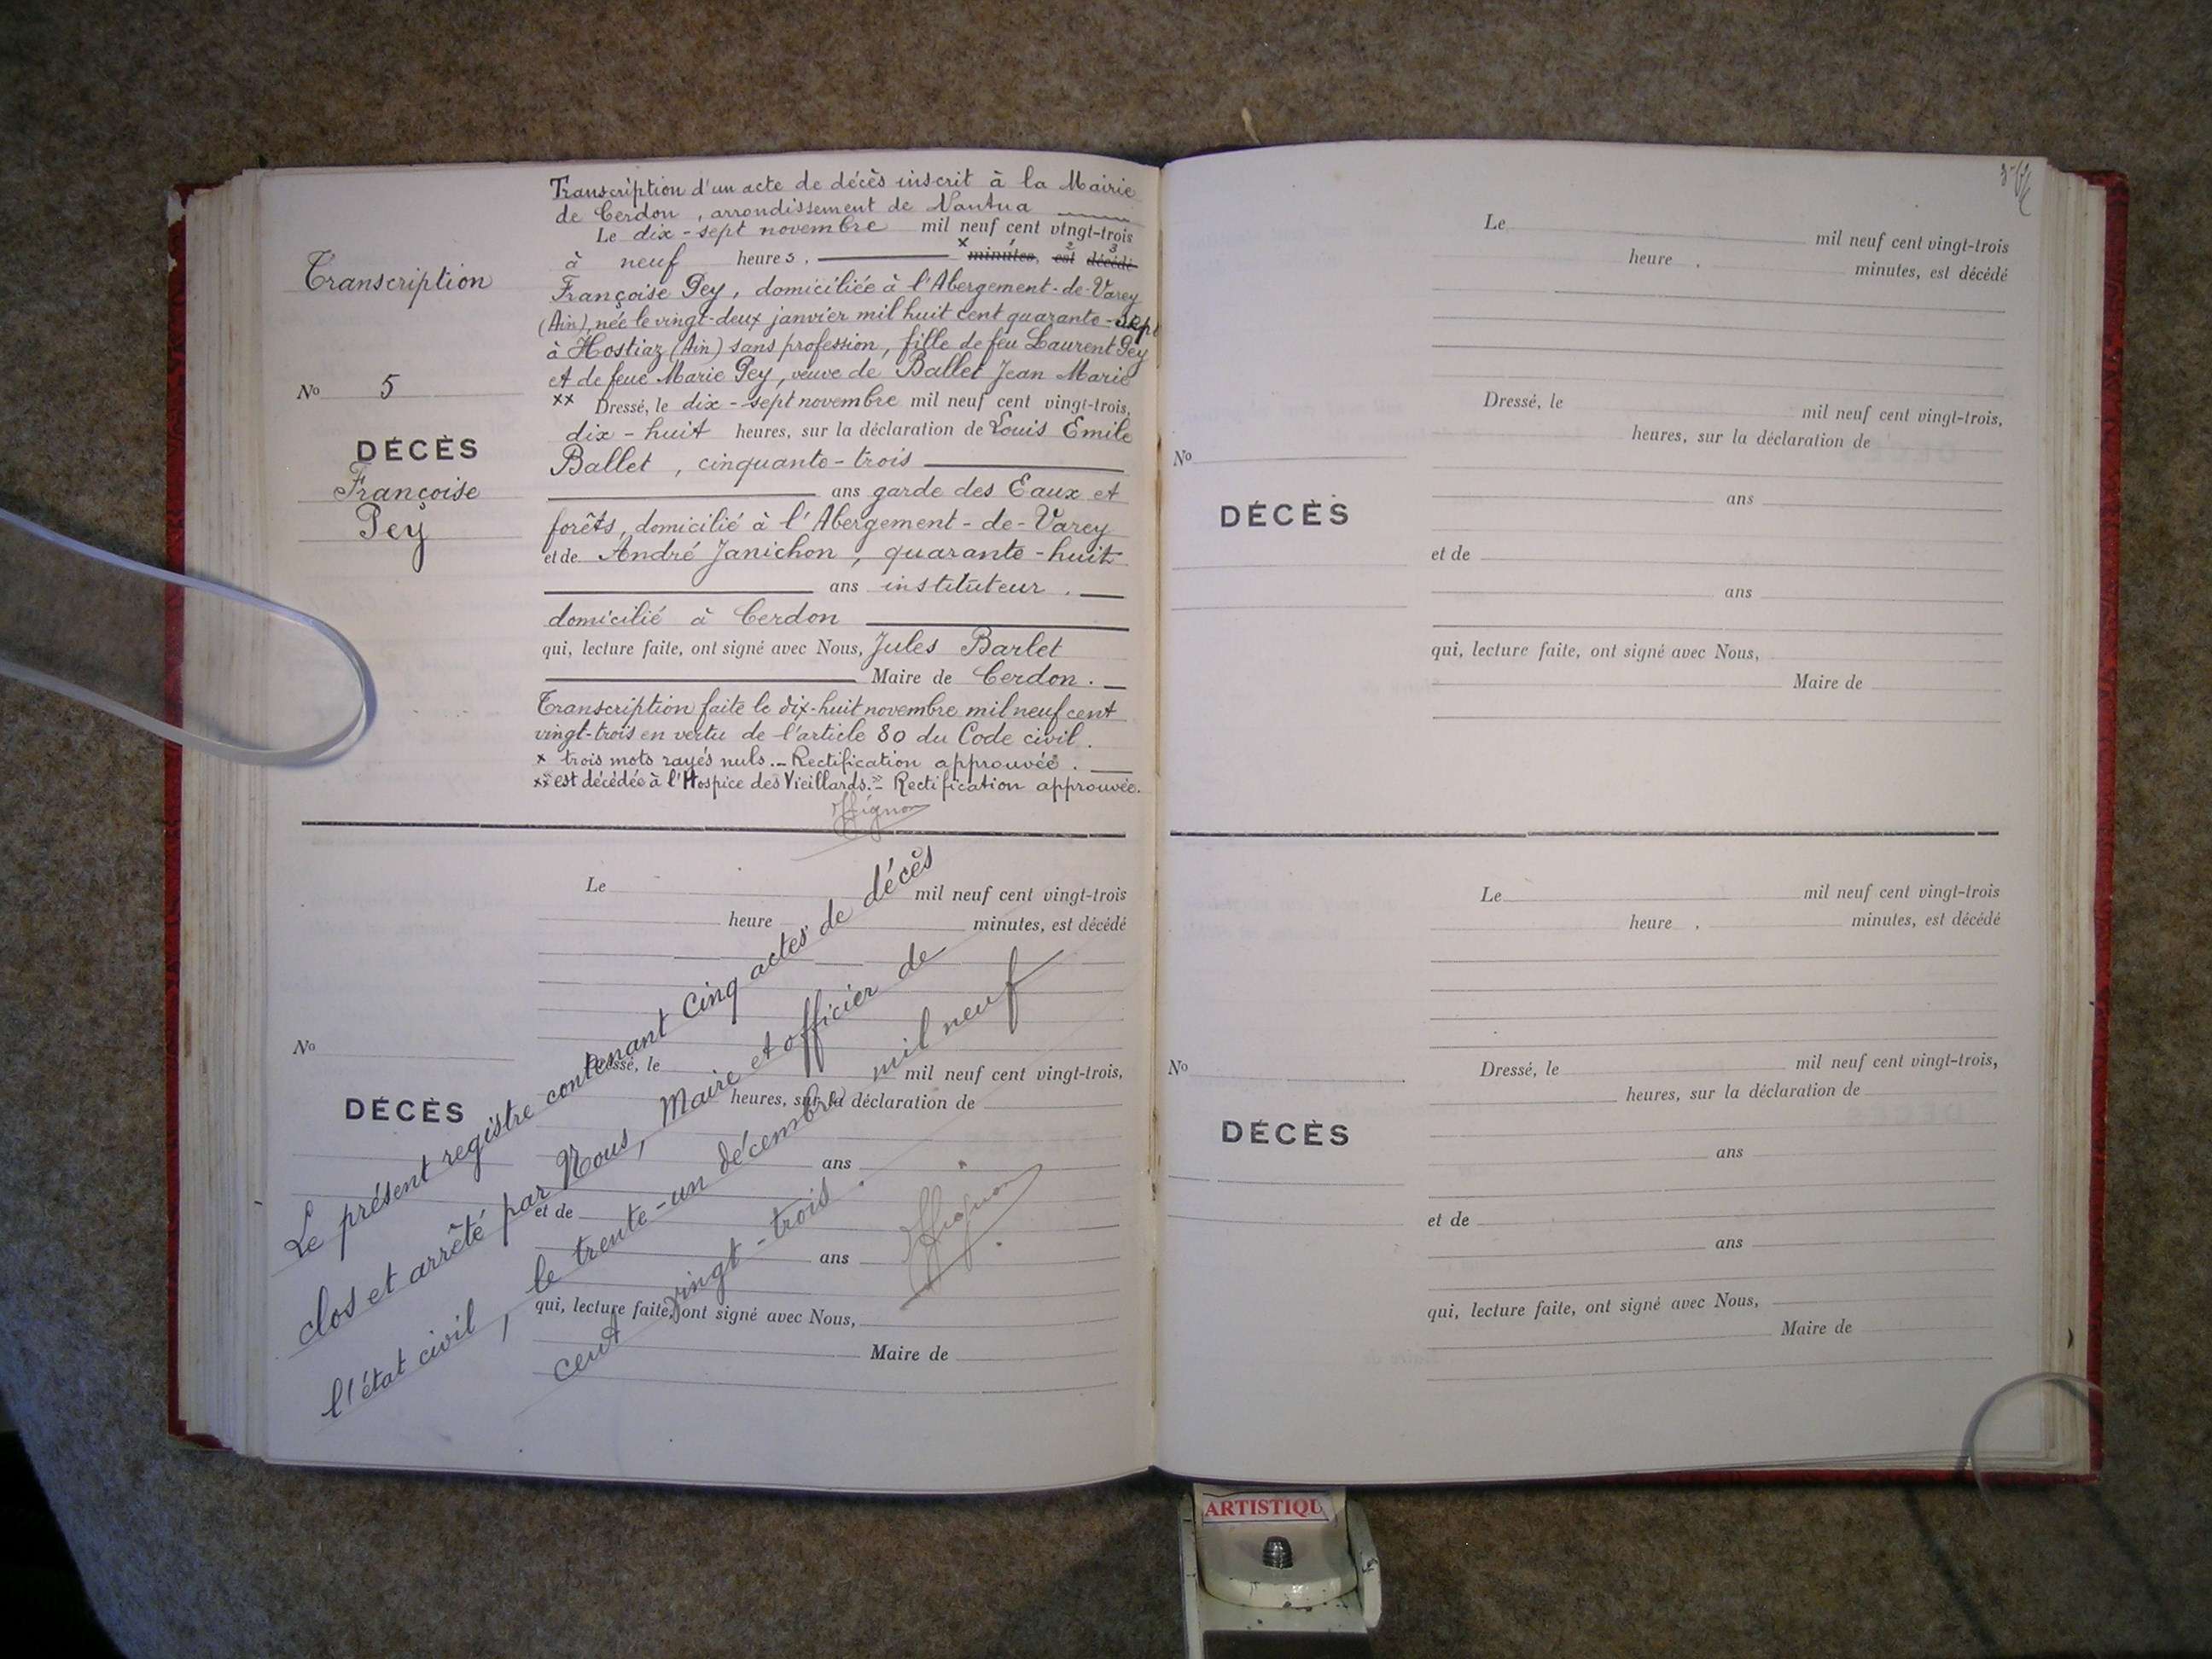 Transcription
No 5
DÉCÈS
Françoise
Pey
Transcription d'un acte de décès inscrit à la Mairie
de Cerdon, arrondissement de Nantua
Le dix-sept novembre mil neuf cent vingt-trois
à neuf heures, x minutes, est décédé
Françoise Pey, domiciliée à l'Abergement-de-Varey
(Ain), née le vingt-deux janvier mil huit cent quarante-sept
à Hostiaz (Ain) sans profession, fille de feu Laurent Pey
et de feue Marie Pey, veuve de Ballet Jean Marie
xx Dressé, le dix-sept novembre mil neuf cent vingt-trois,
dix-huit heures, sur la déclaration de Louis Emile
Ballet, cinquante-trois
ans garde des Eaux et
forêts, domicilié à l'Abergement-de-Varey
et de André Janichon, quarante-huit
ans instituteur,
domicilié à Cerdon
qui, lecture faite, ont signé avec Nous, Jules Barlet
Maire de Cerdon.
Transcription faite le dix-huit novembre mil neuf cent
vingt-trois en vertu de l'article 80 du Code civil.
x trois mots rayés nuls. - Rectification approuvée.
xx "est décédée à l'Hospice des Vieillards." - Rectification approuvée.
Le mil neuf cent vingt-trois
heure minutes, est décédé
No
DÉCÈS
Dressé, le mil neuf cent vingt-trois,
heures, sur la déclaration de
ans
et de
ans
qui, lecture faite, ont signé avec Nous,
Maire de
Le présent registre contenant cinq actes de décès
clos et arrêté par Nous, Maire et officier de
l'état civil, le trente-un décembre mil neuf
cent vingt-trois.
Le mil neuf cent vingt-trois
heure , minutes, est décédé
No
DÉCÈS
Dressé, le mil neuf cent vingt-trois,
heures, sur la déclaration de
ans
et de
ans
qui, lecture faite, ont signé avec Nous,
Maire de
Le mil neuf cent vingt-trois
heure , minutes, est décédé
No
DÉCÈS
Dressé, le mil neuf cent vingt-trois,
heures, sur la déclaration de
ans
et de
ans
qui, lecture faite, ont signé avec Nous,
Maire de
ARTISTIQU